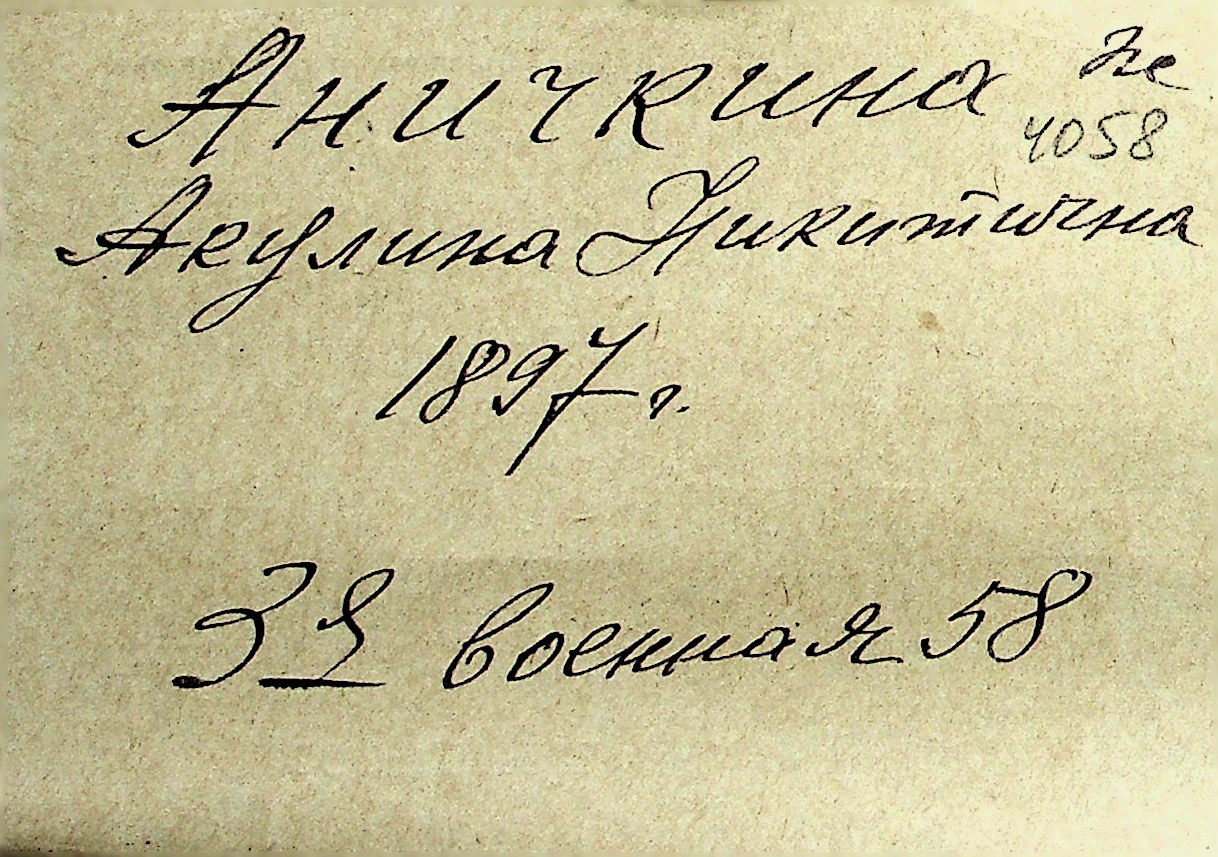 Аничкина
4058
Акулина Никитична
1897 г.
3я военная 58